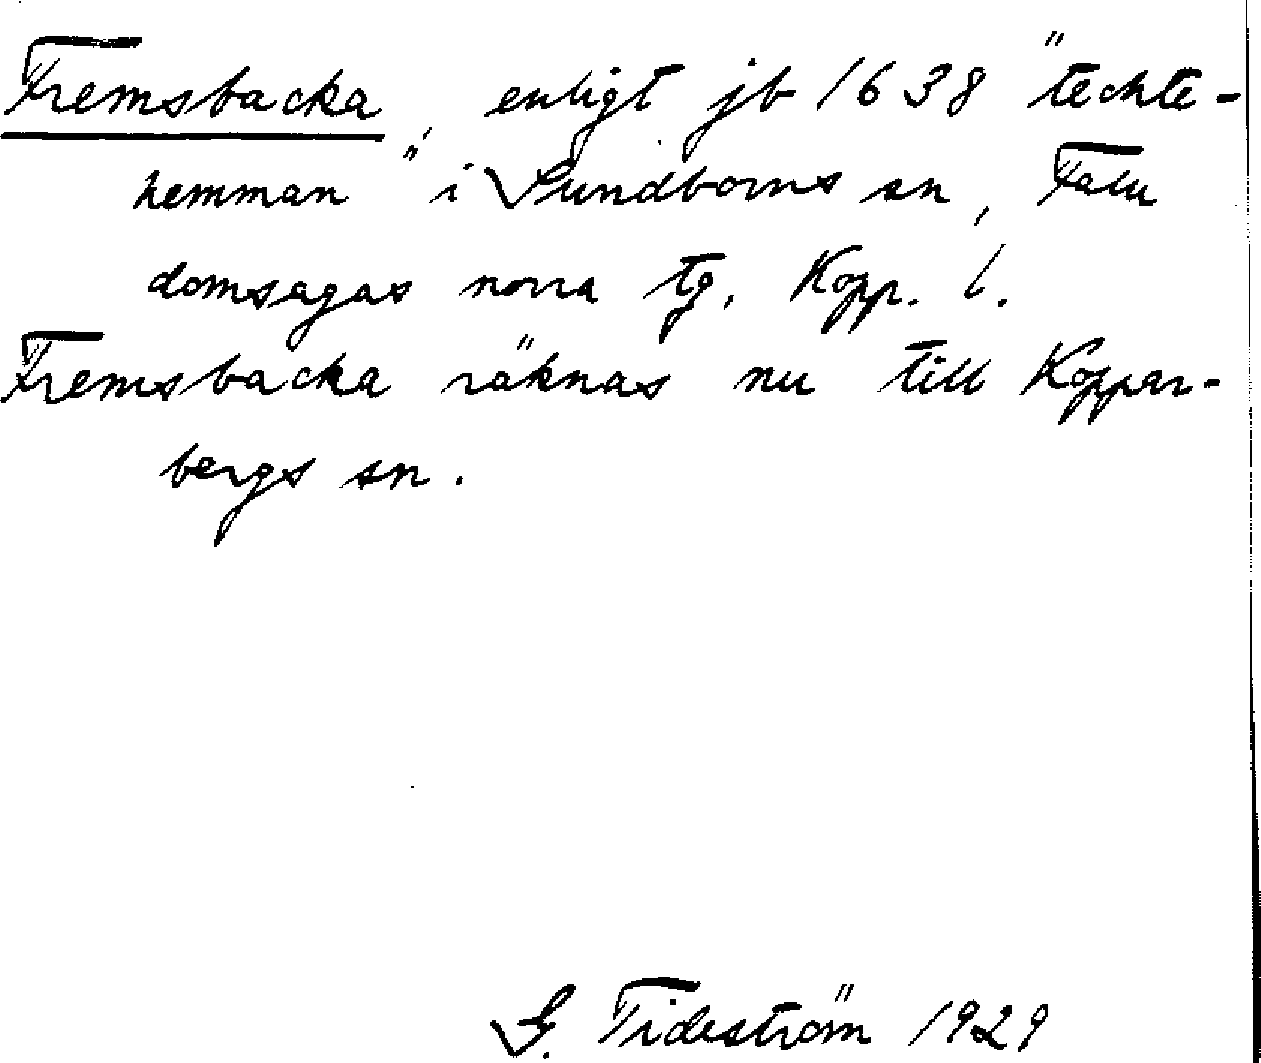 Fremsbacka, enligt jb 1638 "techte-
hemman" i Sundborns sn, Falu
domsagas norra tg, Kopp. l.
Fremsbacka räknas nu till Koppar-
bergs sn.
G. Tideström 1929